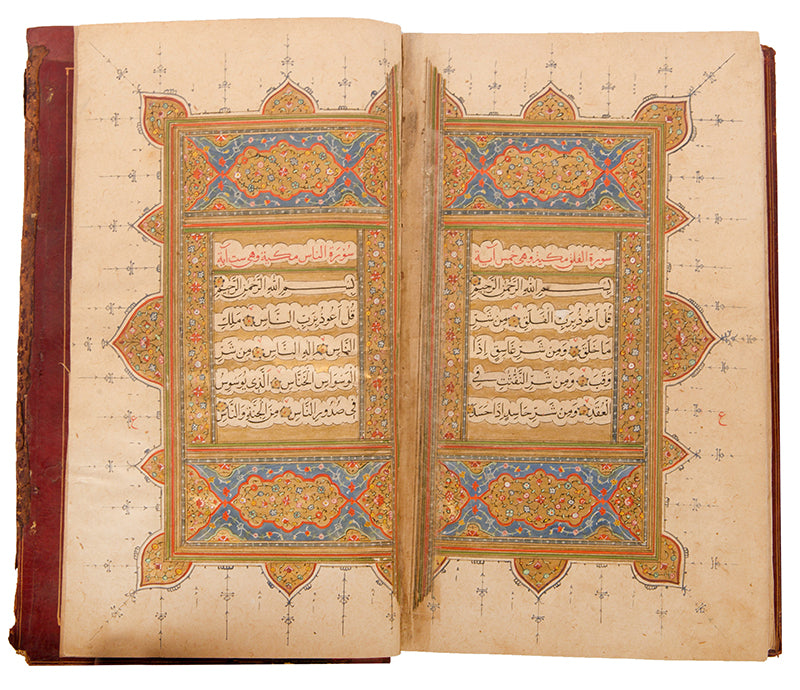 سورة الفلق مكية وهي خمس آية
بسم الله الرحمن الرحيم
قُلْ أَعُوذُ بِرَبِّ الْفَلَقِ مِن شَرِّ
مَا خَلَقَ وَمِن شَرِّ غَاسِقٍ إِذَا
وَقَبَ وَمِن شَرِّ النَّفّٰثٰتِ فِي
الْعُقَدِ وَمِن شَرِّ حَاسِدٍ إِذَا حَسَدَ
ع
سورة الناس مكية وهي ست آية
بسم الله الرحمن الرحيم
قُلْ أَعُوذُ بِرَبِّ النَّاسِ مَلِكِ
النَّاسِ إِلٰهِ النَّاسِ مِن شَرِّ
الْوَسْوَاسِ الْخَنَّاسِ الَّذِي يُوَسْوِسُ
فِي صُدُورِ النَّاسِ مِنَ الْجِنَّةِ وَالنَّاسِ
ع